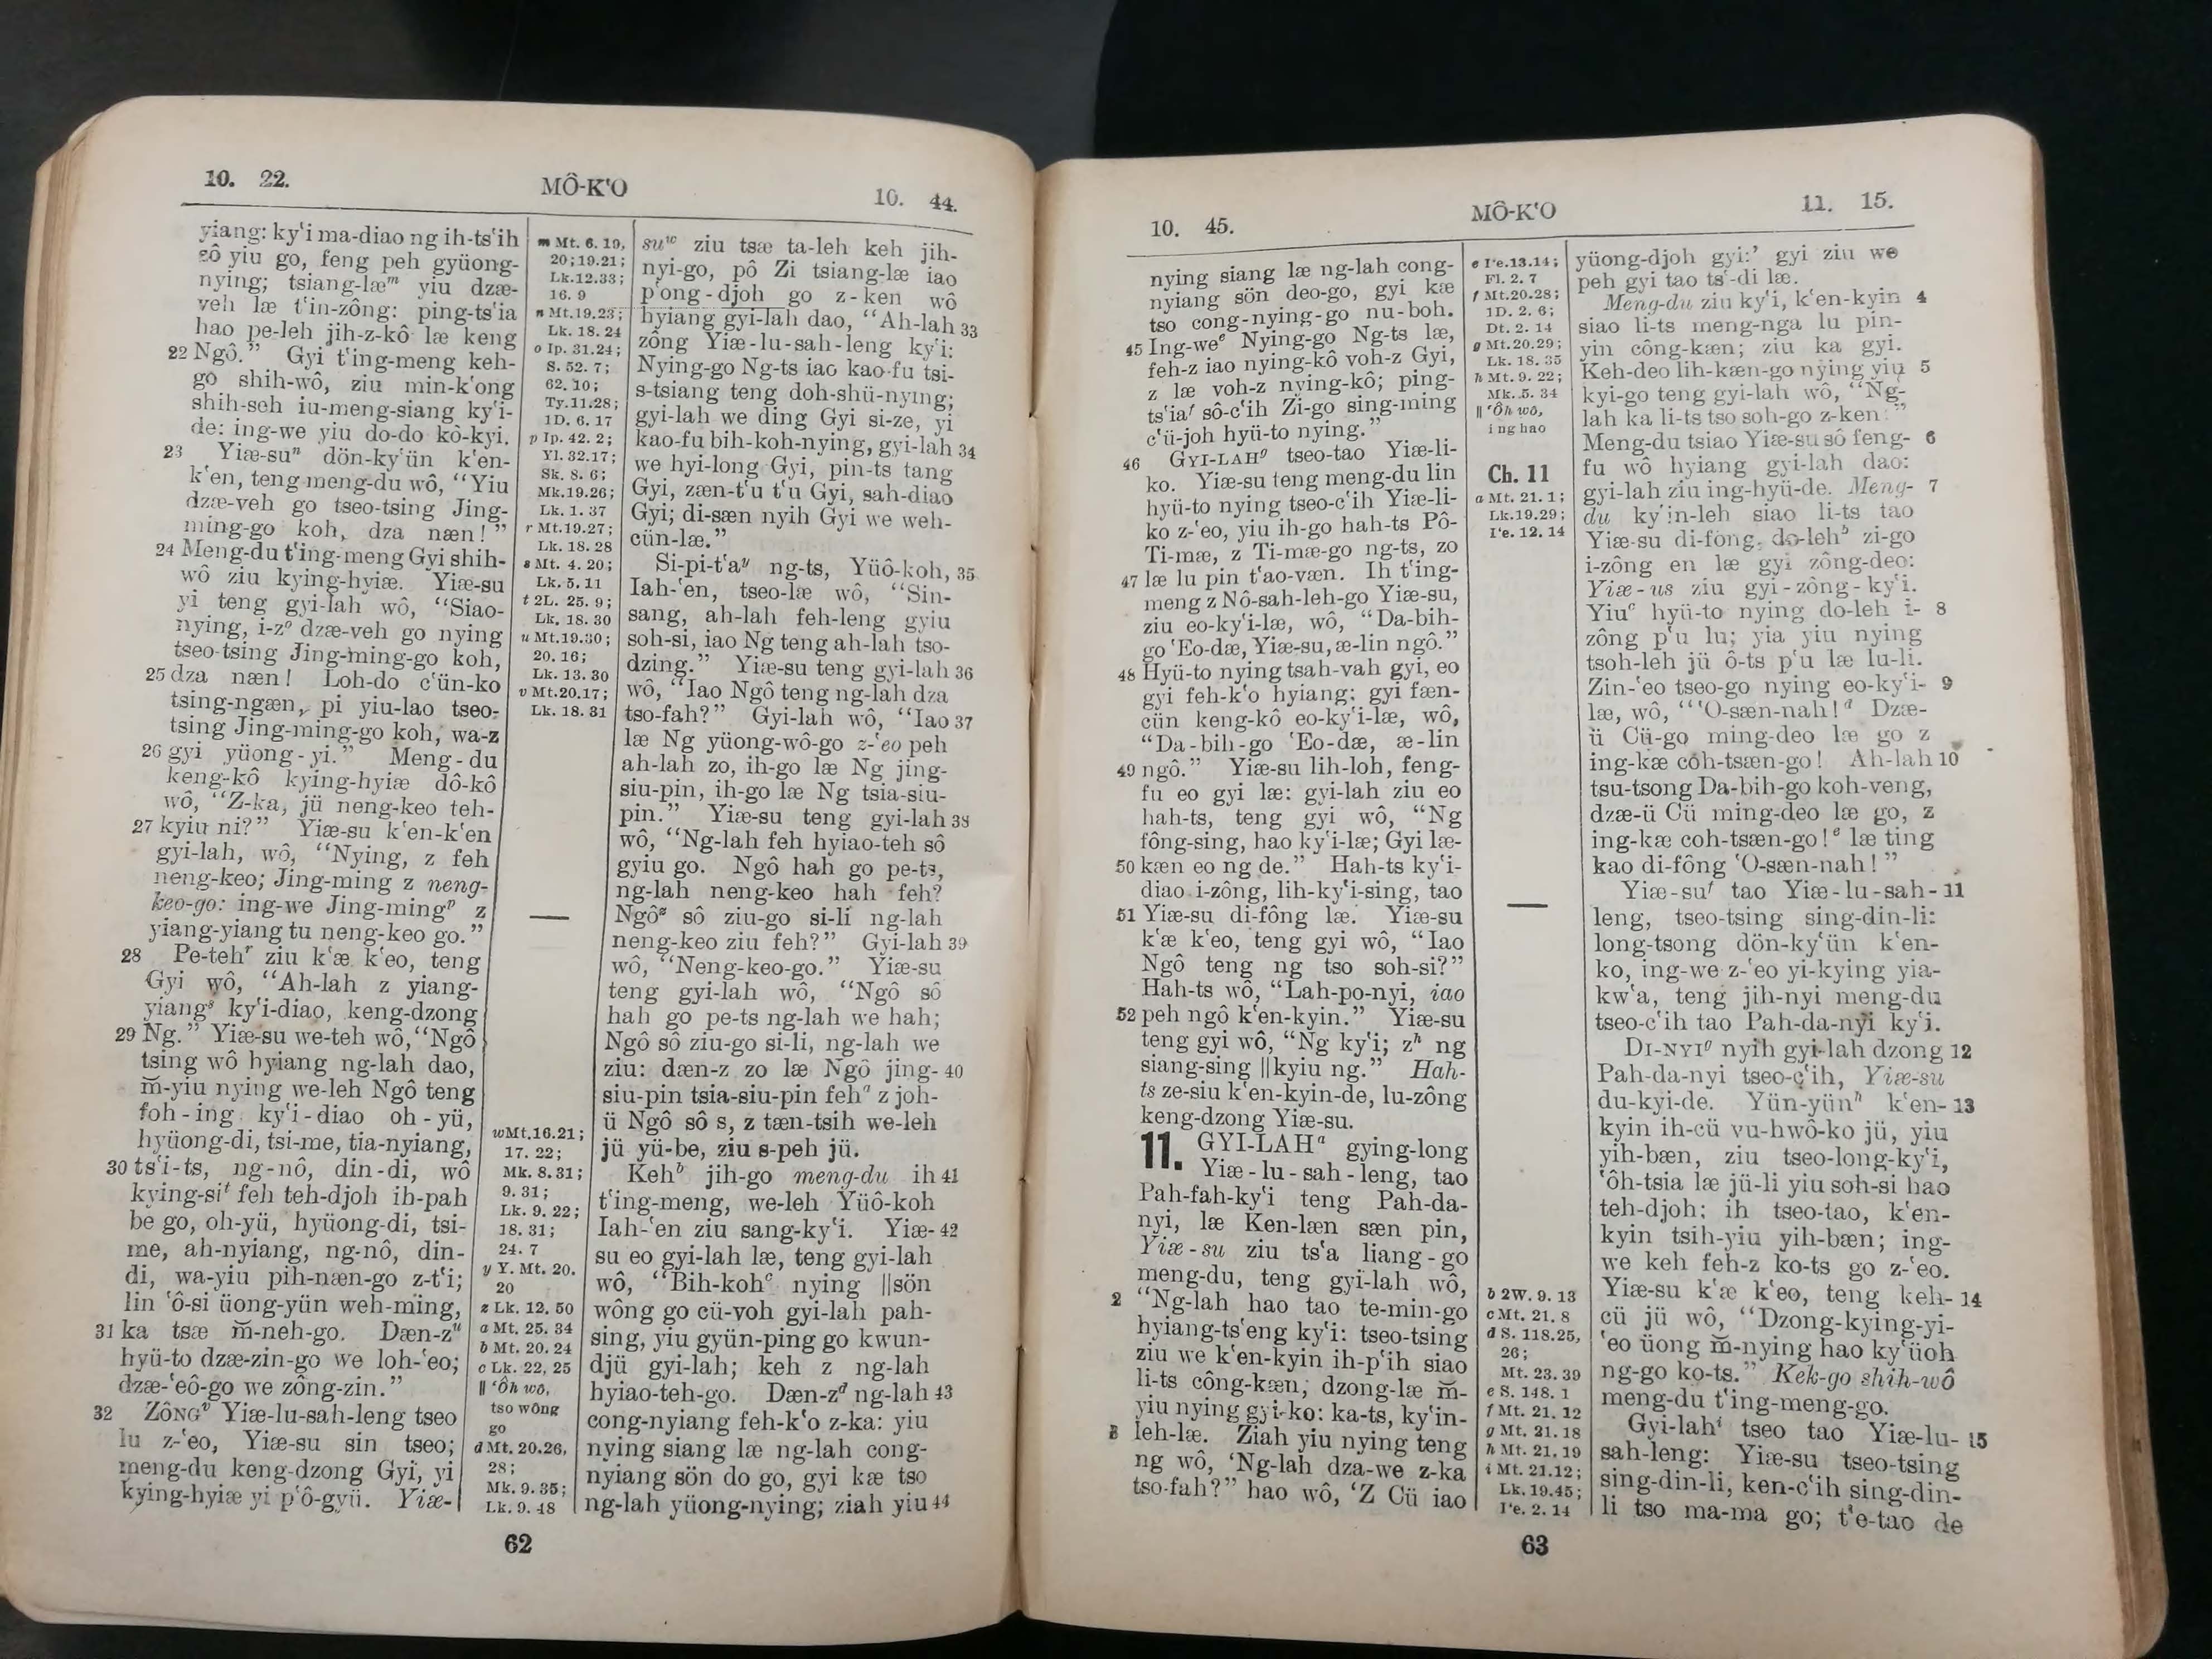 10. 22.
MÔ-K‘O
10. 44.
yiang: ky‘i ma-diao ng ih-ts‘ih
sô yiu go, feng peh gyüong-
nying; tsiang-læᵐ yiu dzæ-
veh læ t‘in-zông: ping-ts‘ia
hao pe-leh jih-z-kô læ keng
22 Ngô.” Gyi t‘ing-meng keh-
go shih-wô, ziu min-k‘ong
shih-seh iu-meng-siang ky‘i-
de: ing-we yiu do-do kô-kyi.
23 Yiæ-suⁿ dön-ky‘ün k‘en-
k‘en, teng meng-du wô, “Yiu
dzæ-veh go tseo-tsing Jing-
ming-go koh, dza næn!”
24 Meng-du t‘ing-meng Gyi shih-
wô ziu kying-hyiæ. Yiæ-su
yi teng gyi-lah wô, “Siao-
nying, i-zᵒ dzæ-veh go nying
tseo-tsing Jing-ming-go koh,
25 dza næn! Loh-do c‘ün-ko
tsing-ngæn, pi yiu-lao tseo-
tsing Jing-ming-go koh, wa-z
26 gyi yüong-yi.” Meng-du
keng-kô kying-hyiæ dô-kô
wô, “Z-ka, jü neng-keo teh-
27 kyiu ni?” Yiæ-su k‘en-k‘en
gyi-lah, wô, “Nying, z feh
neng-keo; Jing-ming z neng-
keo-go: ing-we Jing-mingᵖ z
yiang-yiang tu neng-keo go.”
28 Pe-tehʳ ziu k‘æ k‘eo, teng
Gyi wô, “Ah-lah z yiang-
yiangˢ ky‘i-diao, keng-dzong
29 Ng.” Yiæ-su we-teh wô, “Ngô
tsing wô hyiang ng-lah dao,
m̆-yiu nying we-leh Ngô teng
foh-ing ky‘i-diao oh-yü,
hyüong-di, tsi-me, tia-nyiang,
30 ts‘i-ts, ng-nô, din-di, wô
kying-siᵗ feh teh-djoh ih-pah
be go, oh-yü, hyüong-di, tsi-
me, ah-nyiang, ng-nô, din-
di, wa-yiu pih-næn-go z-t‘i;
lin ‘ô-si üong-yün weh-ming,
31 ka tsæ m̆-neh-go. Dæn-zᵘ
hyü-to dzæ-zin-go we loh-‘eo;
dzæ-‘eô-go we zông-zin.”
32 ZÔNGᵛ Yiæ-lu-sah-leng tseo
lu z-‘eo, Yiæ-su sin tseo;
meng-du keng-dzong Gyi, yi
kying-hyiæ yi p‘ô-gyü. Yiæ-
m Mt. 6. 19,
20; 19.21;
Lk.12.33;
16. 9
n Mt.19.23;
Lk. 18. 24
o Ip. 31.24;
S. 52. 7;
62. 10;
Ty.11.28;
1D. 6. 17
p Ip. 42. 2;
Yl. 32.17;
Sk. 8. 6;
Mk.19.26;
Lk. 1. 37
r Mt.19.27;
Lk. 18. 28
s Mt. 4. 20;
Lk. 5. 11
t 2L. 25. 9;
Lk. 18. 30
u Mt.19.30;
20. 16;
Lk. 13. 30
v Mt.20.17;
Lk. 18. 31
w Mt.16.21;
17. 22;
Mk. 8.31;
9. 31;
Lk. 9. 22;
18. 31;
24. 7
y Y. Mt. 20.
20
z Lk. 12. 50
a Mt. 25. 34
b Mt. 20. 24
c Lk. 22, 25
‖ ‘Ôh wô,
tso wông
go
d Mt. 20.26,
28;
Mk. 9. 35;
Lk. 9. 48
suʷ ziu tsæ ta-leh keh jih-
nyi-go, pô Zi tsiang-læ iao
p‘ong-djoh go z-ken wô
hyiang gyi-lah dao, “Ah-lah 33
zông Yiæ-lu-sah-leng ky‘i:
Nying-go Ng-ts iao kao-fu tsi-
s-tsiang teng doh-shü-nying;
gyi-lah we ding Gyi si-ze, yi
kao-fu bih-koh-nying, gyi-lah 34
we hyi-long Gyi, pin-ts tang
Gyi, zæn-t‘u t‘u Gyi, sah-diao
Gyi; di-sæn nyih Gyi we weh-
cün-læ.”
Si-pi-t‘aʸ ng-ts, Yüô-koh, 35
Iah-‘en, tseo-læ wô, “Sin-
sang, ah-lah feh-leng gyiu
soh-si, iao Ng teng ah-lah tso-
dzing.” Yiæ-su teng gyi-lah 36
wô, “Iao Ngô teng ng-lah dza
tso-fah?” Gyi-lah wô, “Iao 37
læ Ng yüong-wô-go z-‘eo peh
ah-lah zo, ih-go læ Ng jing-
siu-pin, ih-go læ Ng tsia-siu-
pin.” Yiæ-su teng gyi-lah 38
wô, “Ng-lah feh hyiao-teh sô
gyiu go. Ngô hah go pe-ts,
ng-lah neng-keo hah feh?
Ngôᶻ sô ziu-go si-li ng-lah
neng-keo ziu feh?” Gyi-lah 39
wô, “Neng-keo-go.” Yiæ-su
teng gyi-lah wô, “Ngô sô
hah go pe-ts ng-lah we hah;
Ngô sô ziu-go si-li, ng-lah we
ziu: dæn-z zo læ Ngô jing- 40
siu-pin tsia-siu-pin fehᵃ z joh-
ü Ngô sô s, z tæn-tsih we-leh
jü yü-be, ziu s-peh jü.
Kehᵇ jih-go meng-du ih 41
t‘ing-meng, we-leh Yüô-koh
Iah-‘en ziu sang-ky‘i. Yiæ- 42
su eo gyi-lah læ, teng gyi-lah
wô, “Bih-kohᶜ nying ‖sön
wông go cü-voh gyi-lah pah-
sing, yiu gyün-ping go kwun-
djü gyi-lah; keh z ng-lah
hyiao-teh-go. Dæn-zᵈ ng-lah 43
cong-nyiang feh-k‘o z-ka: yiu
nying siang læ ng-lah cong-
nyiang sön do go, gyi kæ tso
ng-lah yüong-nying; ziah yiu 44
62
10. 45.
MÔ-K‘O
11. 15.
nying siang læ ng-lah cong-
nyiang sön deo-go, gyi kæ
tso cong-nying-go nu-boh.
45 Ing-weᵉ Nying-go Ng-ts læ,
feh-z iao nying-kô voh-z Gyi,
z læ voh-z nying-kô; ping-
ts‘iaᶠ sô-c‘ih Zi-go sing-ming
c‘ü-joh hyü-to nying.”
46 GYI-LAHᵍ tseo-tao Yiæ-li-
ko. Yiæ-su teng meng-du lin
hyü-to nying tseo-c‘ih Yiæ-li-
ko z-‘eo, yiu ih-go hah-ts Pô-
Ti-mæ, z Ti-mæ-go ng-ts, zo
47 læ lu pin t‘ao-væn. Ih t‘ing-
meng z Nô-sah-leh-go Yiæ-su,
ziu eo-ky‘i-læ, wô, “Da-bih-
go ‘Eo-dæ, Yiæ-su, æ-lin ngô.”
48 Hyü-to nying tsah-vah gyi, eo
gyi feh-k‘o hyiang; gyi fæn-
cün keng-kô eo-ky‘i-læ, wô,
“Da-bih-go ‘Eo-dæ, æ-lin
49 ngô.” Yiæ-su lih-loh, feng-
fu eo gyi læ: gyi-lah ziu eo
hah-ts, teng gyi wô, “Ng
fông-sing, hao ky‘i-læ; Gyi læ-
50 kæn eo ng de.” Hah-ts ky‘i-
diao i-zông, lih-ky‘i-sing, tao
51 Yiæ-su di-fông læ. Yiæ-su
k‘æ k‘eo, teng gyi wô, “Iao
Ngô teng ng tso soh-si?”
Hah-ts wô, “Lah-po-nyi, iao
52 peh ngô k‘en-kyin.” Yiæ-su
teng gyi wô, “Ng ky‘i; zʰ ng
siang-sing ‖kyiu ng.” Hah-
ts ze-siu k‘en-kyin-de, lu-zông
keng-dzong Yiæ-su.
11. GYI-LAHᵃ gying-long
Yiæ-lu-sah-leng, tao
Pah-fah-ky‘i teng Pah-da-
nyi, læ Ken-læn sæn pin,
Yiæ-su ziu ts‘a liang-go
meng-du, teng gyi-lah wô,
2 “Ng-lah hao tao te-min-go
hyiang-ts‘eng ky‘i: tseo-tsing
ziu we k‘en-kyin ih-p‘ih siao
li-ts công-kæn, dzong-læ m̆-
yiu nying gyi-ko: ka-ts, ky‘in-
3 leh-læ. Ziah yiu nying teng
ng wô, ‘Ng-lah dza-we z-ka
tso-fah?” hao wô, ‘Z Cü iao
e I‘e.13.14;
Fl. 2. 7
f Mt.20.28;
1D. 2. 6;
Dt. 2. 14
g Mt.20.29;
Lk. 18. 35
h Mt. 9. 22;
Mk. 5. 34
‖ ‘Ôh wô,
ing hao
Ch. 11
a Mt. 21. 1;
Lk.19.29;
I‘e. 12. 14
b 2W. 9. 13
c Mt. 21. 8
d S. 118.25,
26;
Mt. 23. 39
e S. 148. 1
f Mt. 21. 12
g Mt. 21. 18
h Mt. 21. 19
i Mt. 21.12;
Lk. 19.45;
I‘e. 2. 14
yüong-djoh gyi:’ gyi ziu we
peh gyi tao ts‘-di læ.
Meng-du ziu ky‘i, k‘en-kyin 4
siao li-ts meng-nga lu pin-
yin công-kæn; ziu ka gyi.
Keh-deo lih-kæn-go nying yiu 5
kyi-go teng gyi-lah wô, “Ng-
lah ka li-ts tso soh-go z-ken?”
Meng-du tsiao Yiæ-su sô feng- 6
fu wô hyiang gyi-lah dao:
gyi-lah ziu ing-hyü-de. Meng- 7
du ky‘in-leh siao li-ts tao
Yiæ-su di-fông, do-lehᵇ zi-go
i-zông en læ gyi zông-deo:
Yiæ-us ziu gyi-zông-ky‘i.
Yiuᶜ hyü-to nying do-leh i- 8
zông p‘u lu; yia yiu nying
tsoh-leh jü ô-ts p‘u læ lu-li.
Zin-‘eo tseo-go nying eo-ky‘i- 9
læ, wô, “‘O-sæn-nah!ᵈ Dzæ-
ü Cü-go ming-deo læ go z
ing-kæ coh-tsæn-go! Ah-lah 10
tsu-tsong Da-bih-go koh-veng,
dzæ-ü Cü ming-deo læ go, z
ing-kæ coh-tsæn-go!ᵉ læ ting
kao di-fông ‘O-sæn-nah!”
Yiæ-suᶠ tao Yiæ-lu-sah- 11
leng, tseo-tsing sing-din-li:
long-tsong dön-ky‘ün k‘en-
ko, ing-we z-‘eo yi-kying yia-
kw‘a, teng jih-nyi meng-du
tseo-c‘ih tao Pah-da-nyi ky‘i.
DI-NYIᵍ nyih gyi-lah dzong 12
Pah-da-nyi tseo-c‘ih, Yiæ-su
du-kyi-de. Yün-yünʰ k‘en- 13
kyin ih-cü vu-hwô-ko jü, yiu
yih-bæn, ziu tseo-long-ky‘i,
‘ôh-tsia læ jü-li yiu soh-si hao
teh-djoh: ih tseo-tao, k‘en-
kyin tsih-yiu yih-bæn; ing-
we keh feh-z ko-ts go z-‘eo.
Yiæ-su k‘æ k‘eo, teng keh- 14
cü jü wô, “Dzong-kying-yi-
‘eo üong m̆-nying hao ky‘üoh
ng-go ko-ts.” Kek-go shih-wô
meng-du t‘ing-meng-go.
Gyi-lahⁱ tseo tao Yiæ-lu- 15
sah-leng: Yiæ-su tseo-tsing
sing-din-li, ken-c‘ih sing-din-
li tso ma-ma go; t‘e-tao de
63